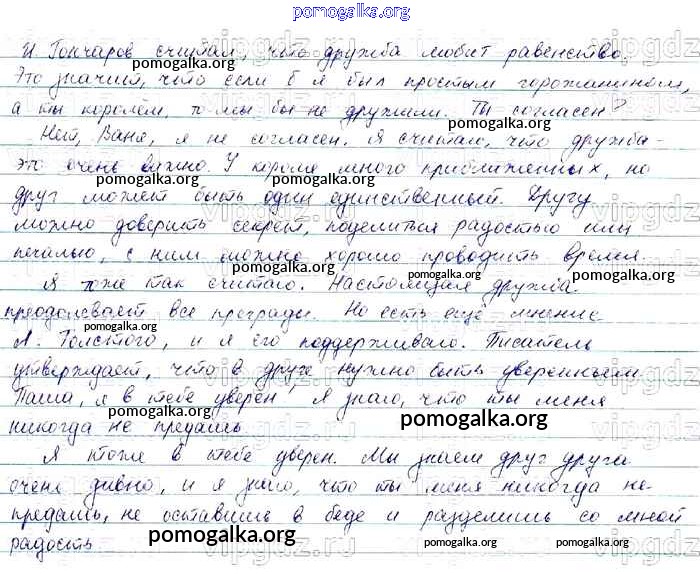 pomogalka.org
И. Гончаров считал, что дружба любит равенство.
Это значит, что если б я был простым горожанином,
а ты королём, то мы бы не дружили. Ты согласен?
pomogalka.org
Нет, Ваня, я не согласен. Я считаю, что дружба -
это очень важно. У короля много приближенных, но
pomogalka.org pomogalka.org
друг может быть один единственный. Другу
можно доверить секрет, поделиться радостью или
печалью, с ним можно хорошо проводить время.
pomogalka.org pomogalka.org pomogalka.org
Я тоже так считаю. Настоящая дружба
преодолевает все преграды. Но есть ещё мнение
pomogalka.org
Л. Толстого, и я его поддерживаю. Писатель
утверждает, что в друге нужно быть уверенным.
Паша, я в тебе уверен. Я знаю, что ты меня
pomogalka.org pomogalka.org
никогда не предашь.
Я тоже в тебе уверен. Мы знаем друг друга
очень давно, и я знаю, что ты меня никогда не
предашь, не оставишь в беде и разделишь со мной
pomogalka.org
радость.
pomogalka.org pomogalka.org